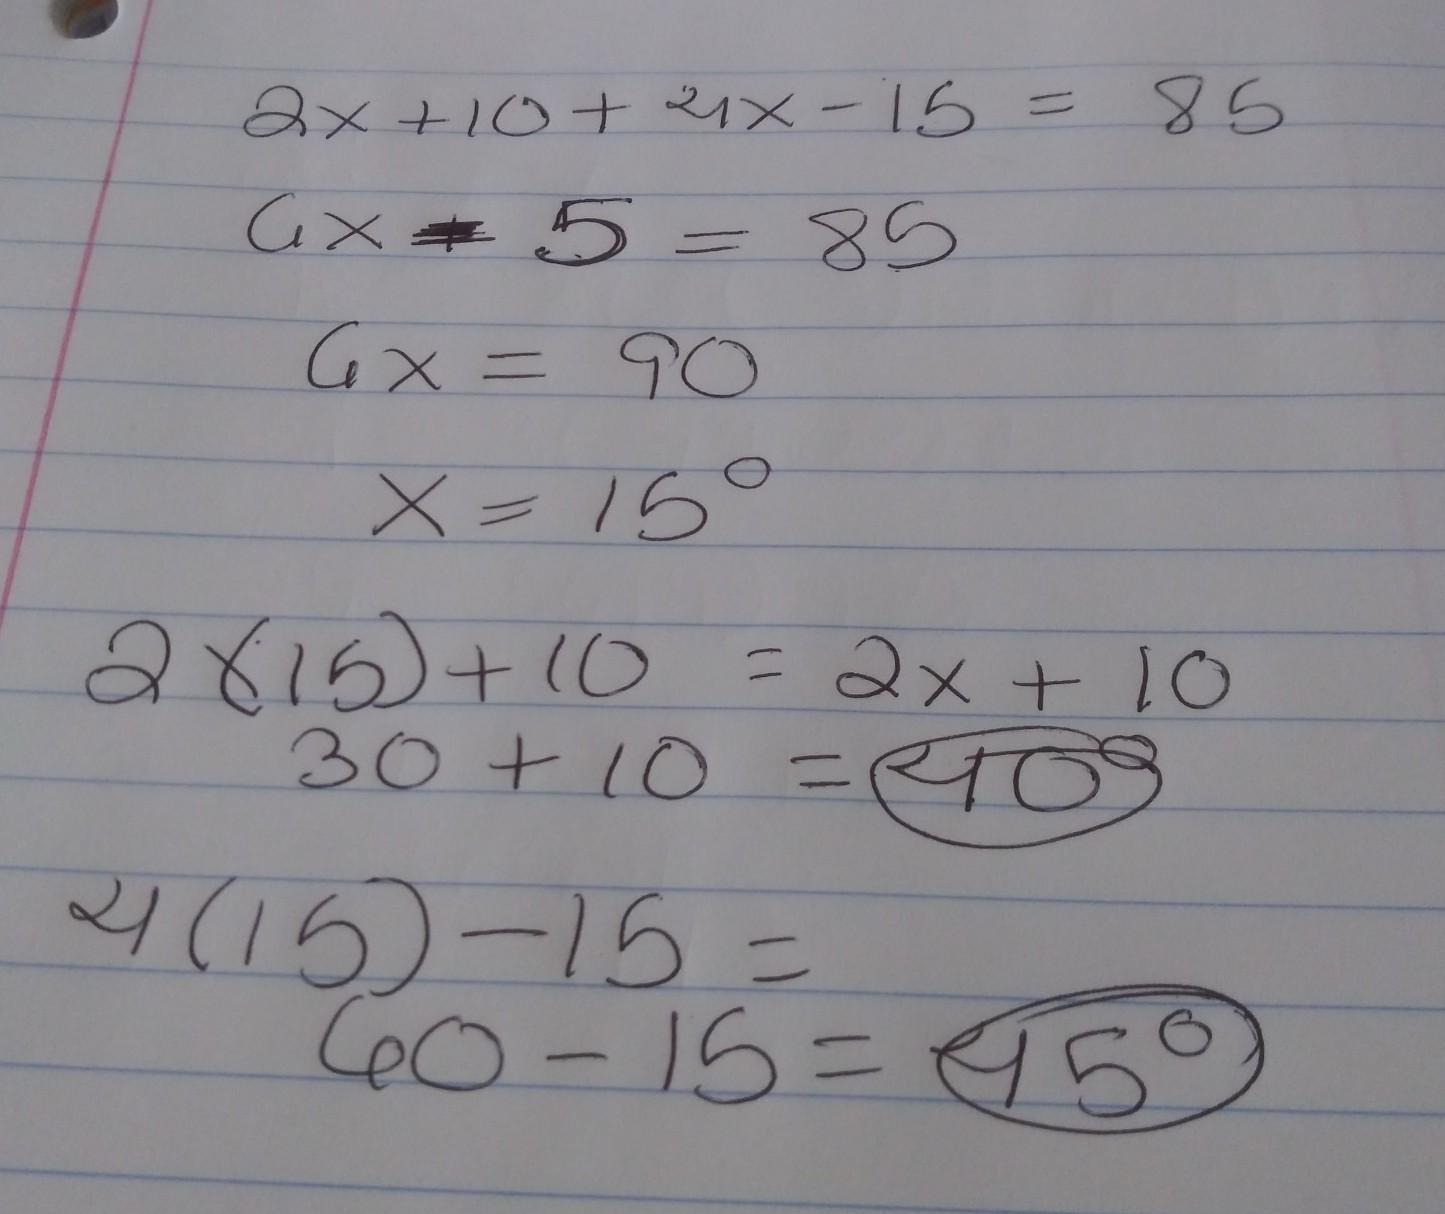 2x + 10 + 4x - 15 = 85
6x - 5 = 85
6x = 90
x = 15°
2(15) + 10 = 2x + 10
30 + 10 = 40°
4(15) - 15 =
60 - 15 = 45°